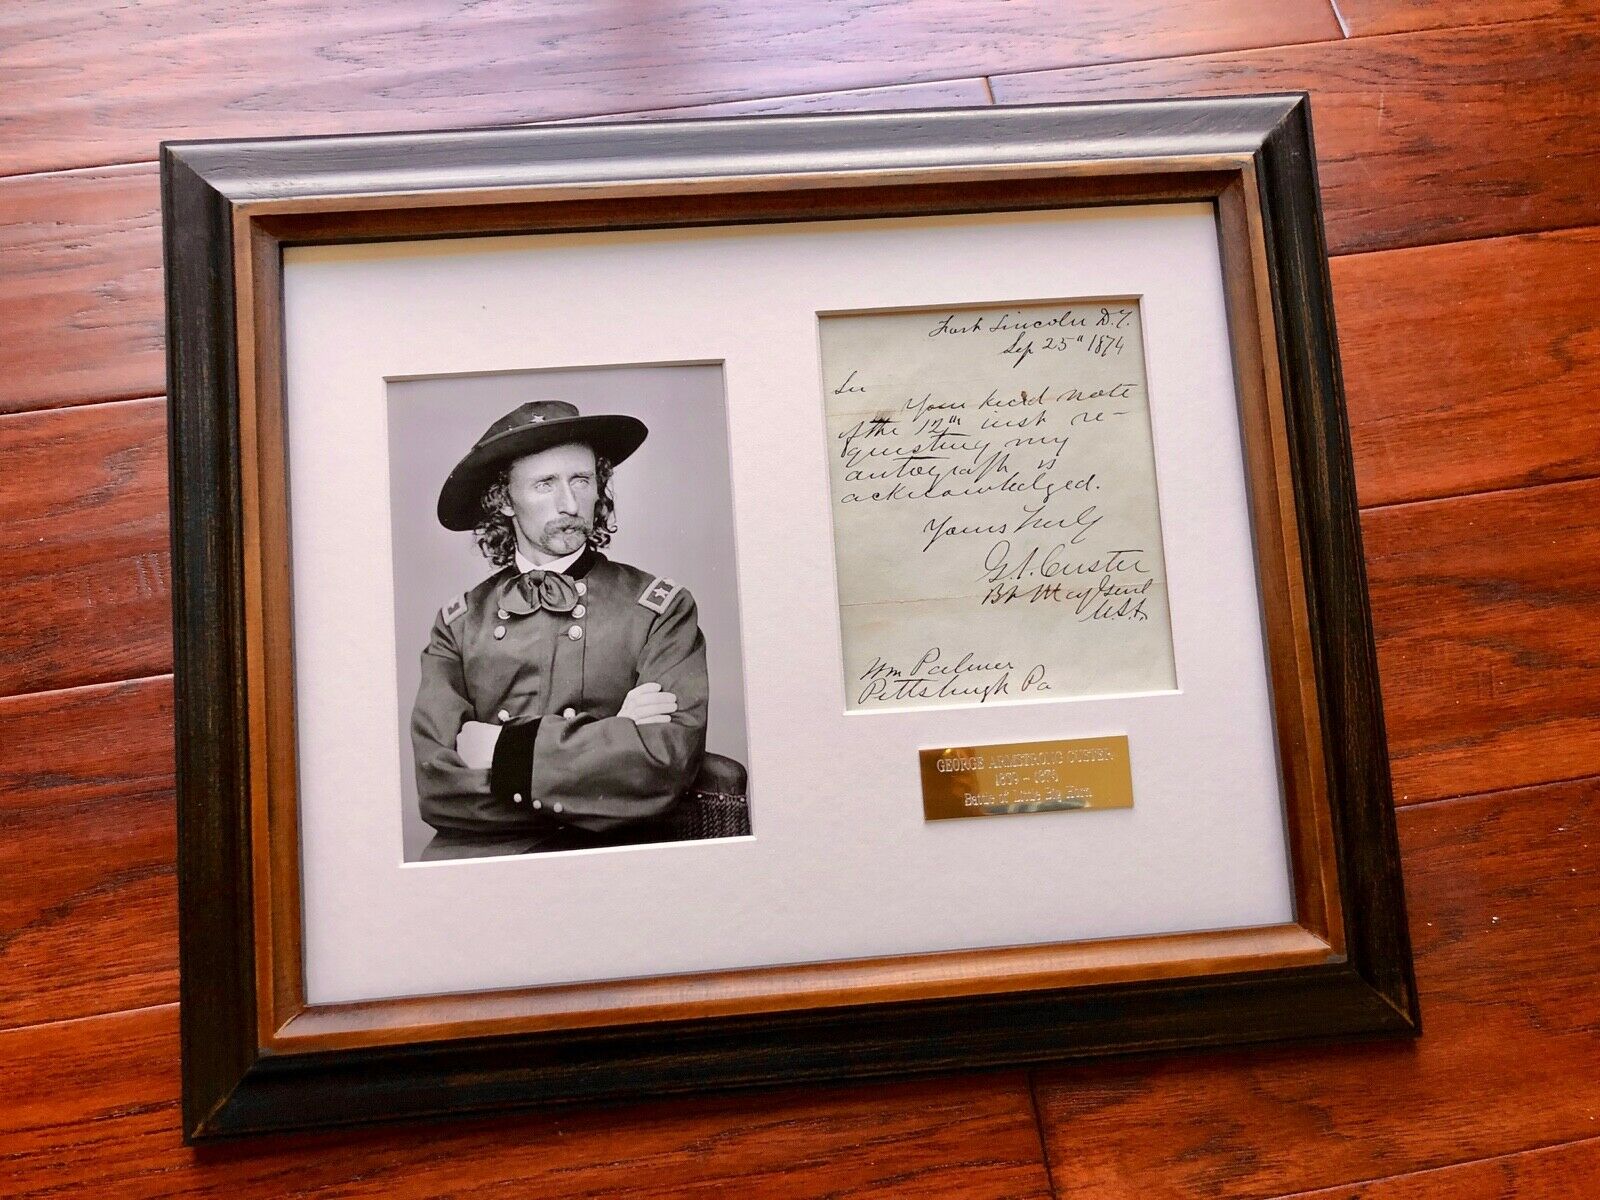 Fort Lincoln D.T.
Sep 25" 1874
Sir
Your kind note
of the 12th inst re-
questing my
autograph is
acknowledged.
Yours truly
G.A. Custer
Bt Maj Genl
U.S.A.
Wm Palmer
Pittsburgh Pa
GEORGE ARMSTRONG CUSTER
1839 - 1876
Battle of Little Big Horn